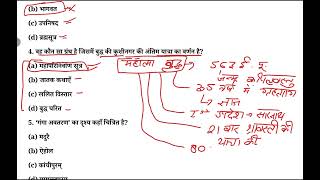 (b) भागवत
(c) उपनिषद
(d) ब्रह्मसूत्र
4. वह कौन सा ग्रंथ है जिसमें बुद्ध की कुशीनगर की अंतिम यात्रा का वर्णन है?
(a) महापरिनिब्बाण सूत्र
(b) जातक कथाएं
(c) ललित विस्तार
(d) बुद्ध चरित
महात्मा बुद्ध
563 ई. पू.
जन्म कपिलवस्तु
35 वर्ष में
ज्ञान
उपदेश - सारनाथ
21 बार श्रावस्ती की
यात्रा की
80
5. 'गंगा अवतरण' का दृश्य कहाँ चित्रित है?
(a) मदुरै
(b) ऐहोल
(c) कांचीपुरम्